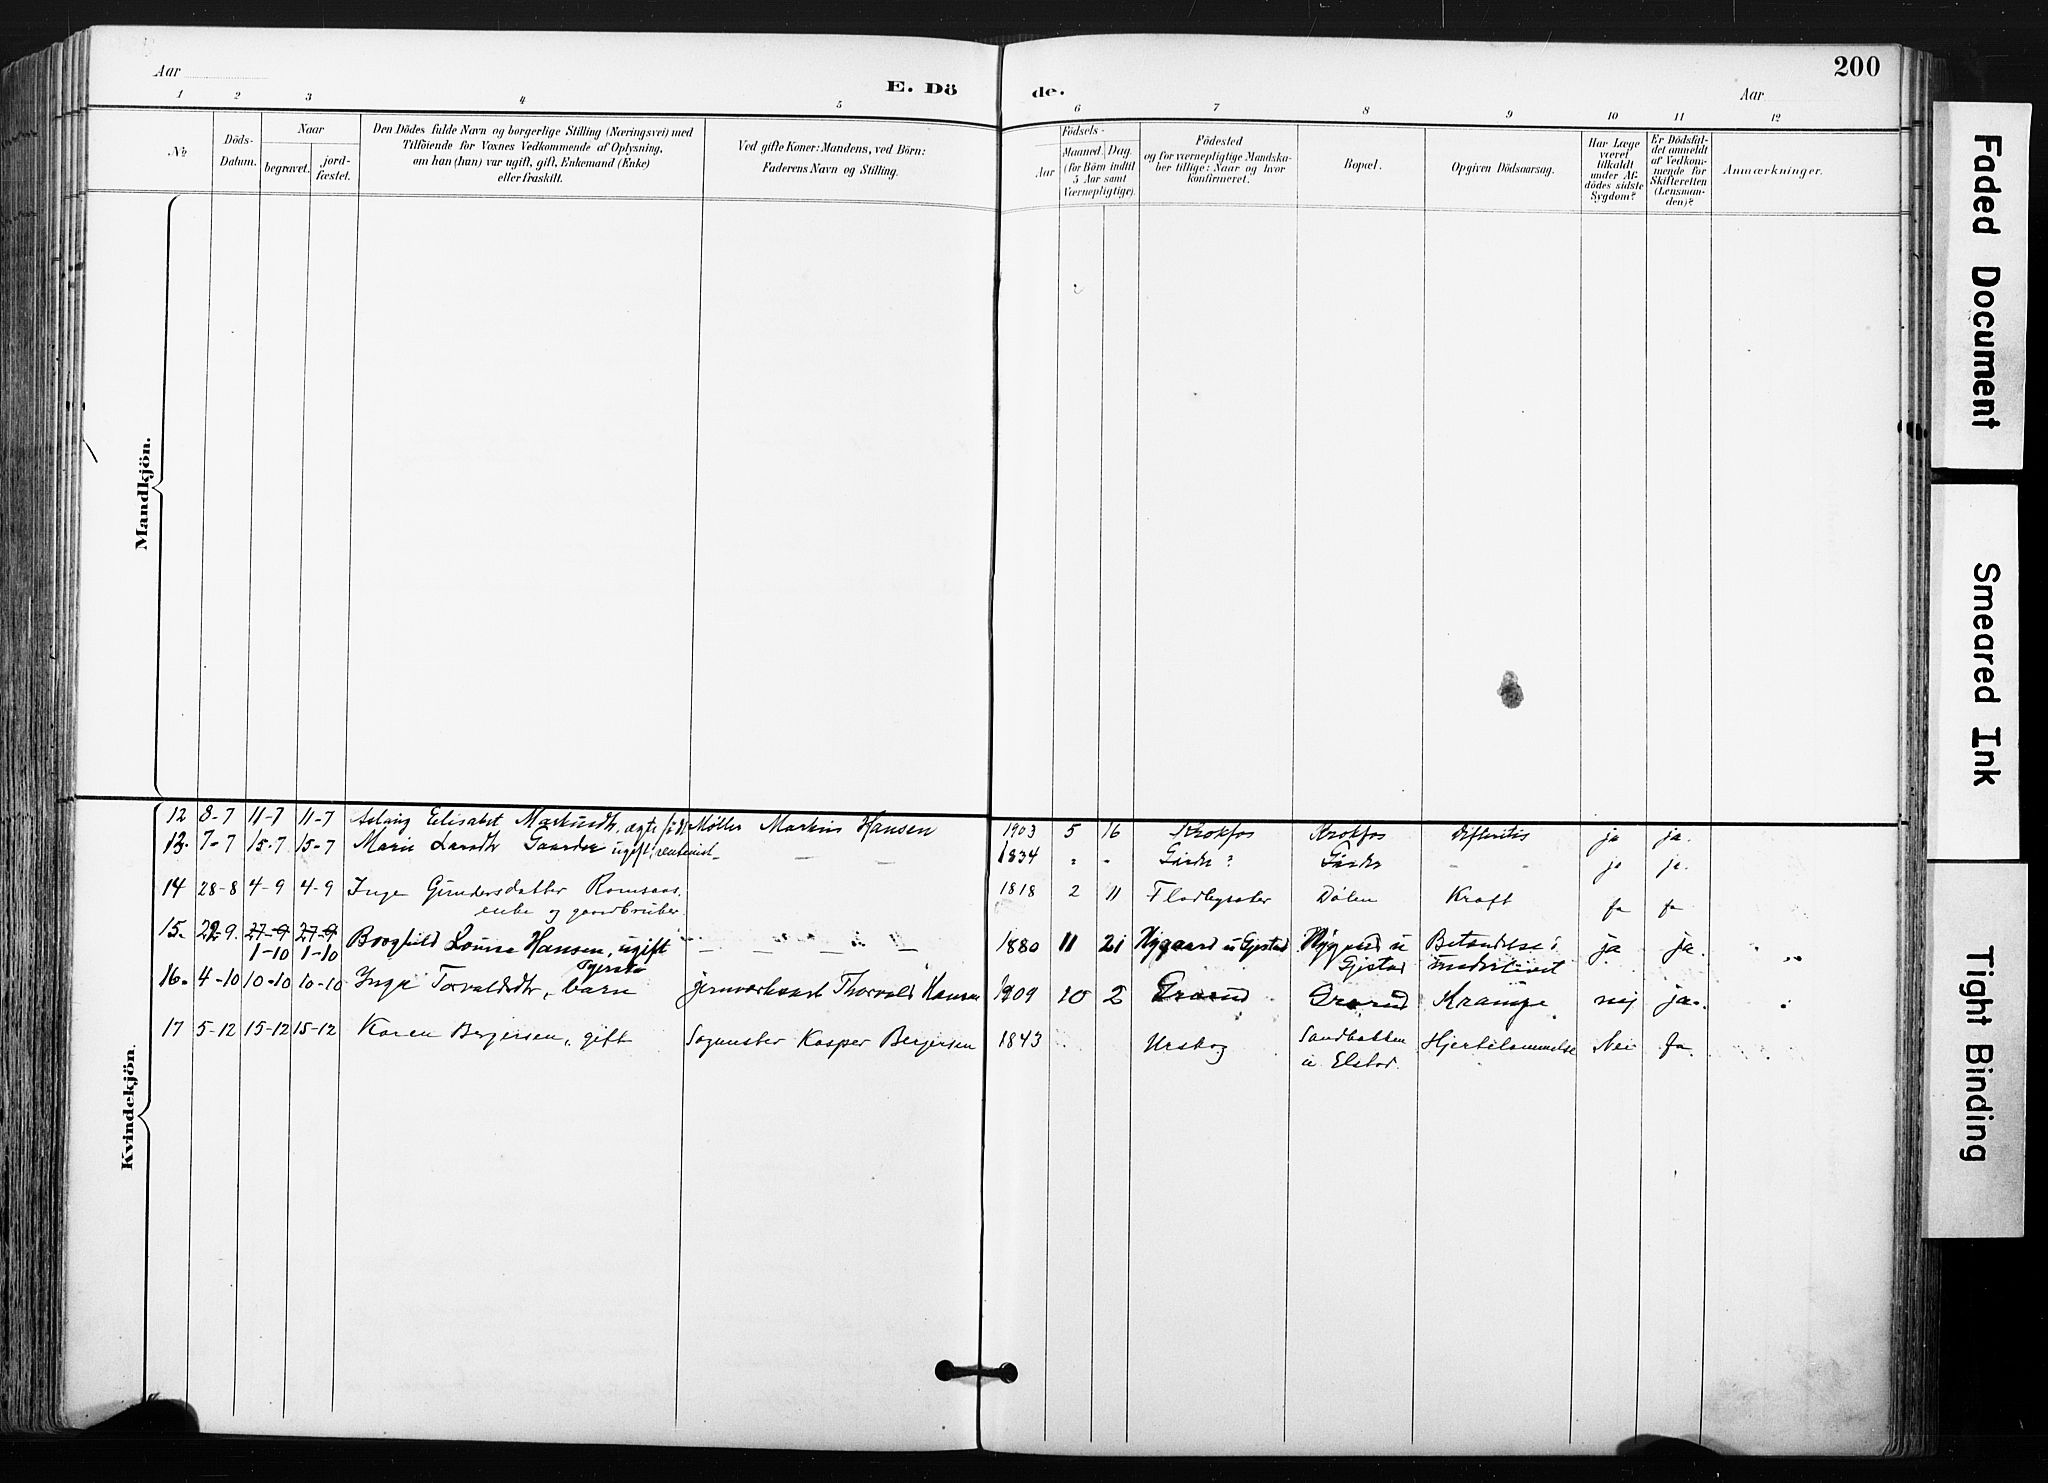 Aar
E. Dö
de.
Aar
200
1 2 3 4 5 6 7 8 9 10 11 12
No
Döds-
Datum.
Naar
begravet.
jord-
fæstet.
Den Dödes fulde Navn og borgerlige Stilling (Næringsvei) med
Tilföiende for Voxnes Vedkommende af Oplysning,
om han (hun) var ugift, gift, Enkemand (Enke)
eller fraskilt.
Ved gifte Koner: Mandens, ved Börn:
Faderens Navn og Stilling.
Födsels-
Aar
Maaned. Dag.
(for Börn indtil
5 Aar samt
Værnepligtige).
Födested
og for værnepligtige Mandska-
ber tillige: Naar og hvor
konfirmeret.
Bopæl.
Opgiven Dödsaarsag.
Har Læge
været
tilkaldt
under Af-
dödes sidste
Sygdom?
Er Dödsfal-
det anmeldt
af Vedkom-
mende for
Skifteretten
(Lensman-
den)?
Anmærkninger.
Mandkjön.
Kvindekjön.
12 8-7 11-7 11-7 Aslaug Elisabet ægte född Møller Martin Hansen 1903 5 16 Krokfos Krokfos Difteritis ja ja.
13. 7-7 15-7 15-7 Marie Larsdtr Gaarder ugift, rentenist - - - - 1834 " - ? - - ja ja.
14 28-8 4-9 4-9 Inge Gundersdatter Romsaas. 1818 2 11 Dølen Kraft Ja Ja
enke og gaardbruker.
15. 22-9. 27-9 27-9 Borghild Louise Hansen, ugift - - - - - 1880 11 21 Nygaard u Gjestad Nygaard u Betændelse i ja ja.
1-10 1-10 Gjestad underlivet
16. 4-10 10-10 10-10 Inga Torvaldsdtr, barn Thorvald Hansen 1909 10 2 Krampe nej ja.
17 5-12 15-12 15-12 Karen Bergersen, gift Sagmester Kasper Bergersen 1843 Urskog Sandbakken Hjertelammelse Nei Ja.
u. Elstad.
Faded Document
Smeared Ink
Tight Binding